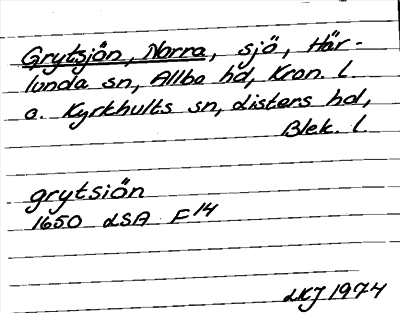 Grytsjön, Norra, sjö, Här-
lunda sn, Allbo hd, Kron. l.
o. Kyrkhults sn, Listers hd,
Blek. l.
grytsiön
1650 LSA F14
LKJ 1974